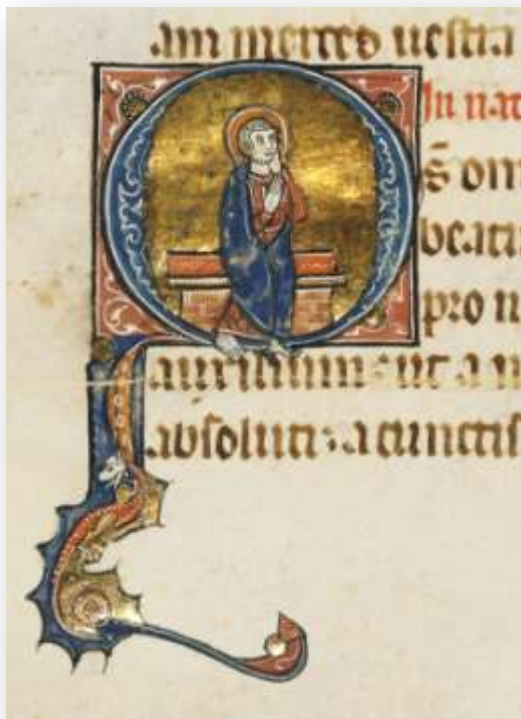 am merces uestra
In nat
O
s̄ om
beati
pro n
auxilium: ut a n
absoluti: a cunctis